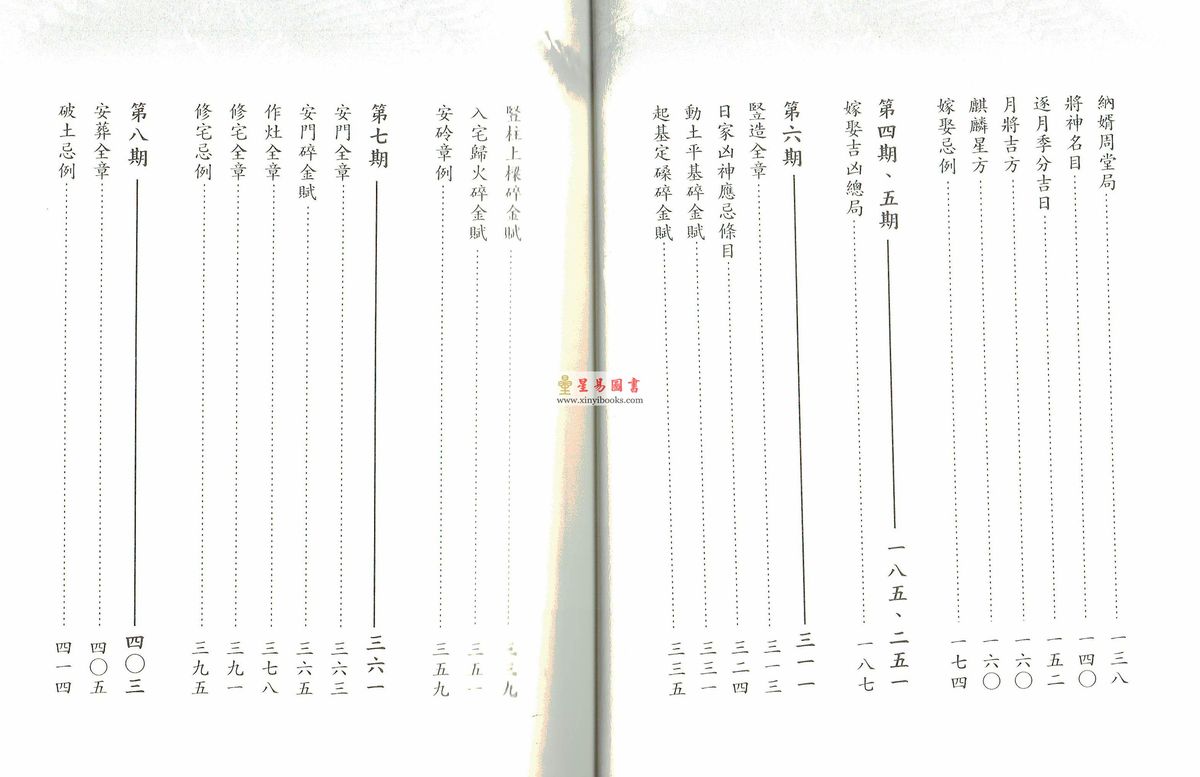 納婿周堂局⋯⋯一三八
將神名目⋯⋯一四〇
逐月季分吉日⋯⋯一五二
月將吉方⋯⋯一六〇
麒麟星方⋯⋯一六〇
嫁娶忌例⋯⋯一七四
第四期、五期——一八五、二五一
嫁娶吉凶總局⋯⋯一八七
第六期——三一一
豎造全章⋯⋯三一三
日家凶神應忌條目⋯⋯三二四
動土平基碎金賦⋯⋯三三一
起基定磉碎金賦⋯⋯三三五
豎柱上樑碎金賦⋯⋯九
入宅歸火碎金賦⋯⋯三五一
安砱章例⋯⋯三五九
第七期——三六一
安門全章⋯⋯三六三
安門碎金賦⋯⋯三六五
作灶全章⋯⋯三七八
修宅全章⋯⋯三九一
修宅忌例⋯⋯三九五
第八期——四〇三
安葬全章⋯⋯四〇五
破土忌例⋯⋯四一四
星易圖書
www.xinyibooks.com